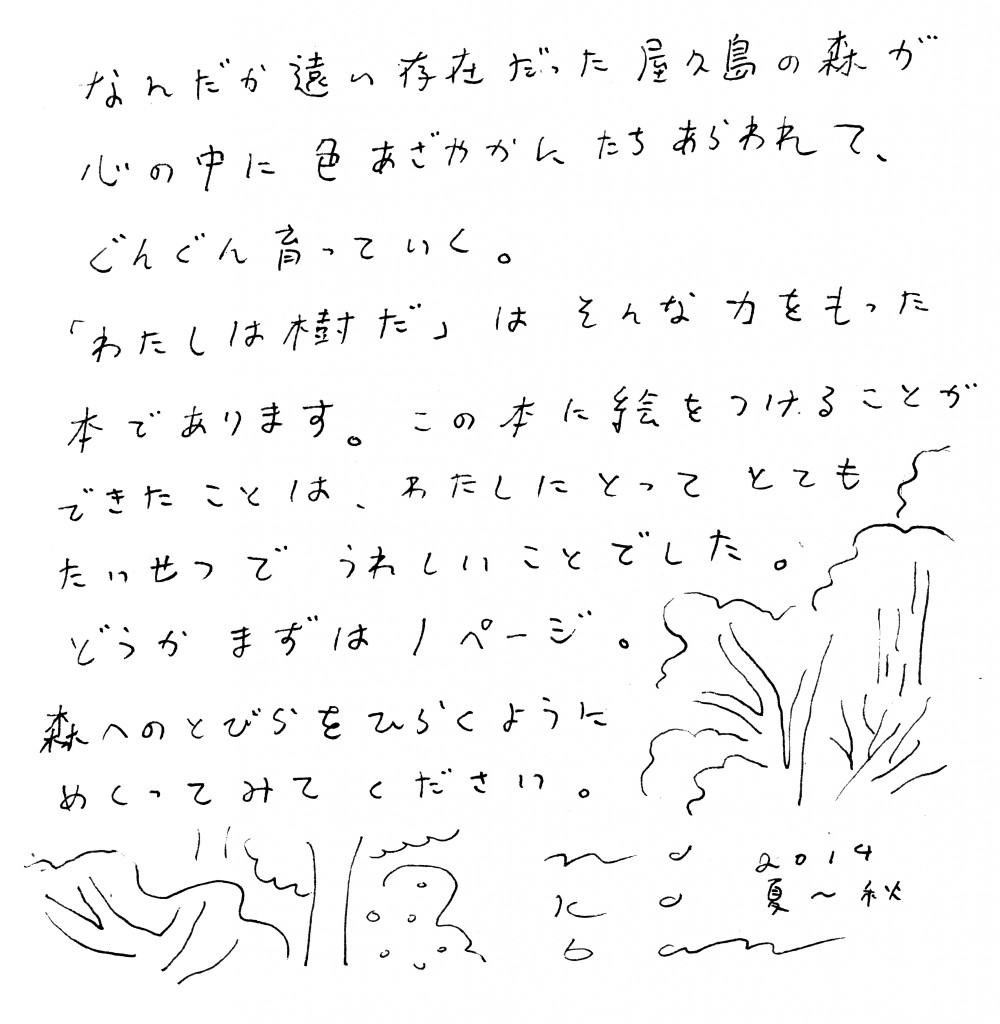 なんだか遠い存在だった屋久島の森が
心の中に色あざやかに たちあらわれて、
ぐんぐん育っていく。
「わたしは樹だ」は そんな力をもった
本であります。この本に絵をつけることが
できたことは、わたしにとって とても
たいせつで うれしいことでした。
どうか まずは1ページ。
森へのとびらをひらくように
めくってみてください。
2014
夏〜秋